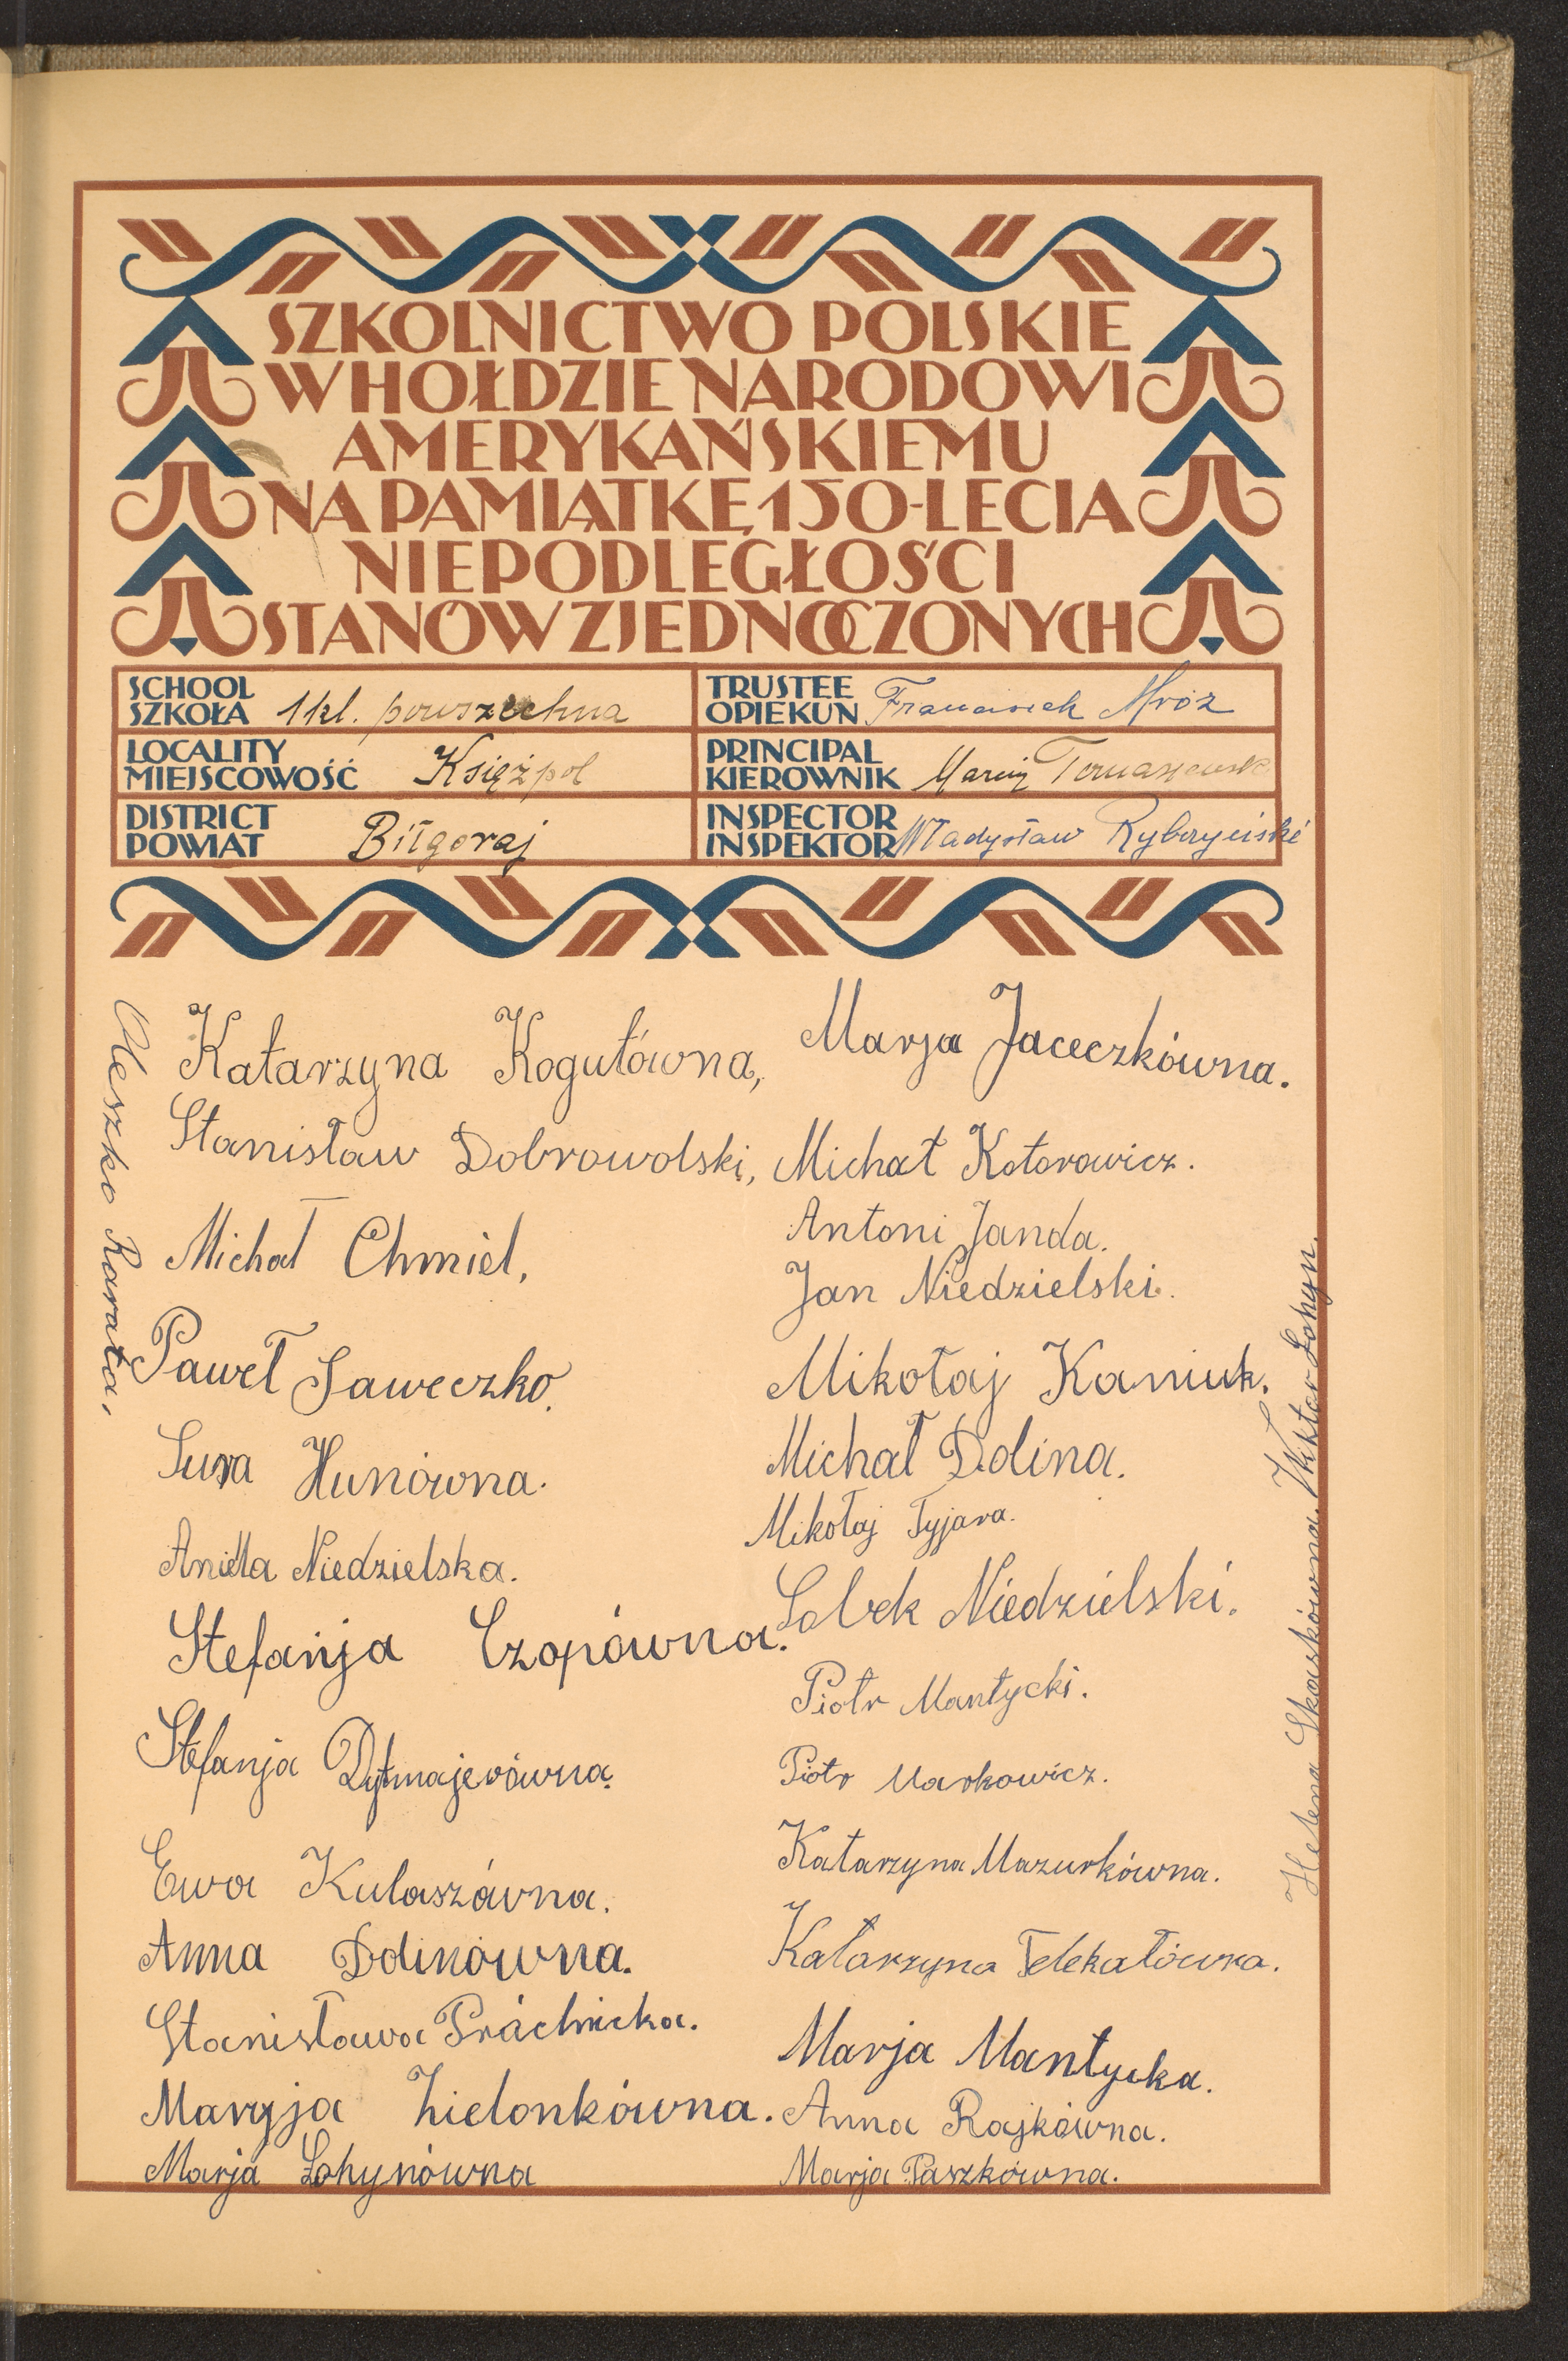 SZKOLNICTWO POLSKIE
W HOŁDZIE NARODOWI
AMERYKAŃSKIEMU
NA PAMIĄTKĘ 150-LECIA
NIEPODLEGŁOŚCI
STANÓW ZJEDNOCZONYCH
SCHOOL
SZKOŁA 1 kl. powszechna
TRUSTEE
OPIEKUN Franciszek Mróz
LOCALITY
MIEJSCOWOŚĆ Księżpol
PRINCIPAL
KIEROWNIK Marcin Tomaszewski
DISTRICT
POWIAT Biłgoraj
INSPECTOR
INSPEKTOR Władysław Rybczyński
Oleszko Rarata,
Katarzyna Kogutówna,
Stanisław Dobrowolski,
Michał Chmiel,
Paweł Saweczko.
Sura Hunówna.
Aniela Niedzielska.
Stefanja Czopówna.
Stefanja Dytmajerówna.
Ewa Kulaszówna.
Anna Dolinówna.
Stanisława Práchnicka.
Maryja Zielonkówna.
Marja Łohynówna
Marja Jaceczkówna.
Michał Kotorowicz.
Antoni Janda.
Jan Niedzielski.
Mikołaj Kaniuk.
Michał Dolina.
Mikołaj Tyjara.
Sobek Niedzielski.
Piotr Mantycki.
Piotr Markowicz.
Katarzyna Mazurkówna.
Katarzyna Telekatówna.
Marja Mantycka.
Anna Rajkówna.
Marja Paszkówna.
Helena Skaskówna. Wiktor Łohyn.